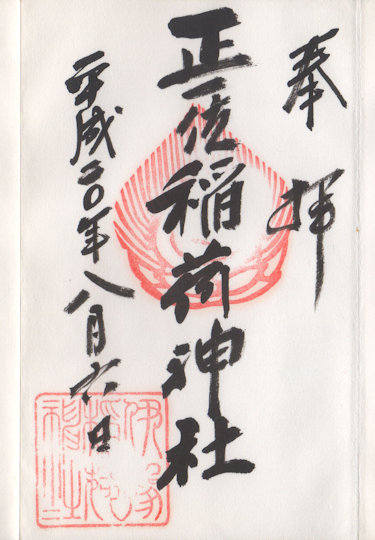 奉拝
正一位稲荷神社
平成二〇年八月六日